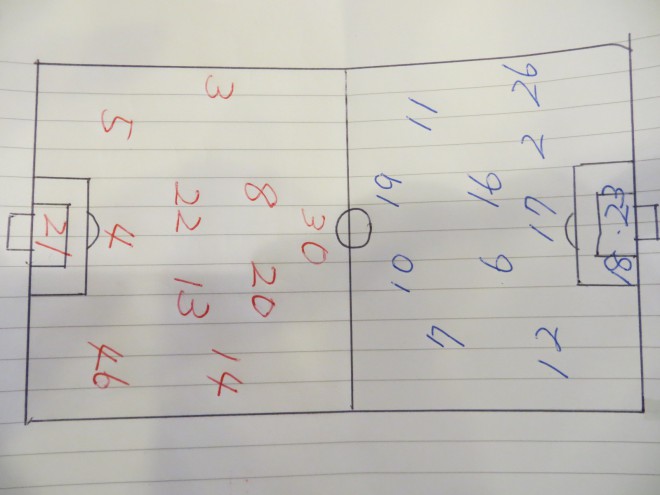 3
5
8
22
30
4
21
20
13
14
46
26
11
2
19
16
17
18.23
10
6
7
12